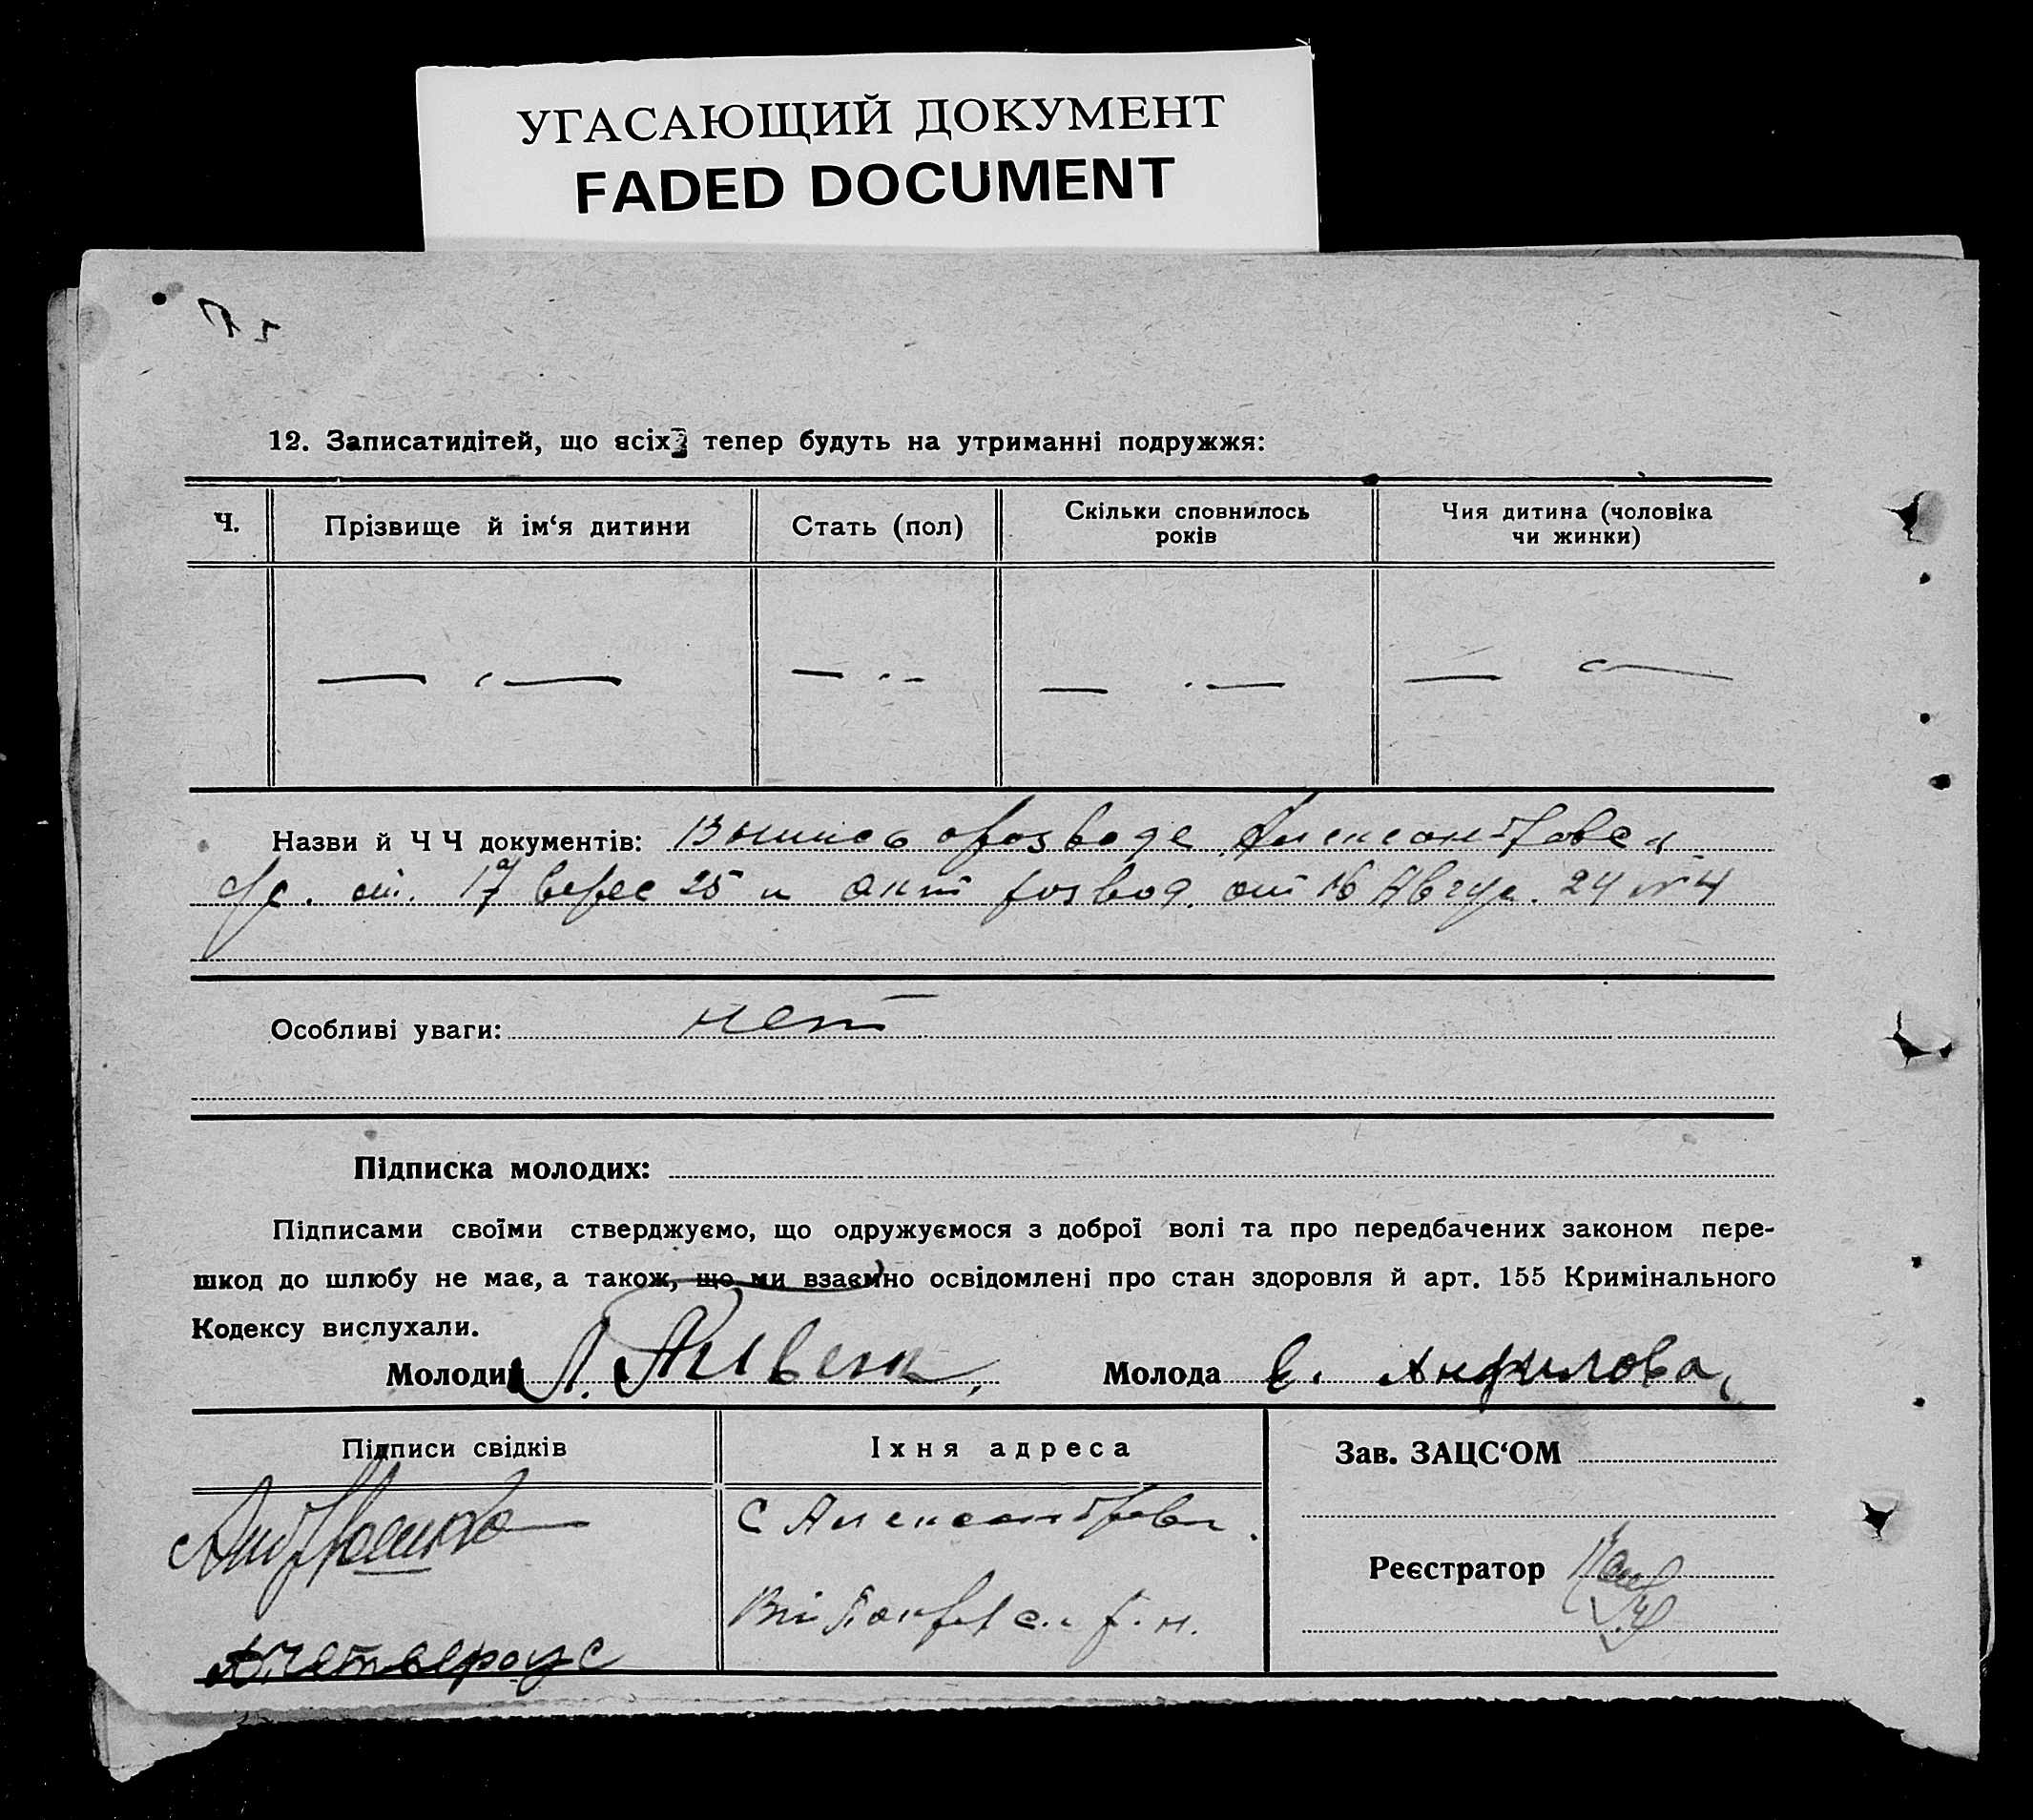 УГАСАЮЩИЙ ДОКУМЕНТ
FADED DOCUMENT
12. Записатидітей, що всіх тепер будуть на утриманні подружжя:
Ч.
Прізвище й ім‘я дитини
Стать (пол)
Скільки сповнилось
років
Чия дитина (чоловіка
чи жинки)
Назви й Ч Ч документів: о розводе
от. 17 верес 25 и акт розвод. от 16 Авгус. 24 №4
Особливі уваги: нет
Підписка молодих:
Підписами своїми стверджуємо, що одружуємося з доброї волі та про передбачених законом пере-
шкод до шлюбу не має, а також, що ми взаємно освідомлені про стан здоровля й арт. 155 Кримінального
Кодексу вислухали.
Молодий Молода Є. Анфилова,
Підписи свідків
Іхня адреса
Зав. ЗАЦС‘ОМ
С Александровка.
Реєстратор
А Четвероус